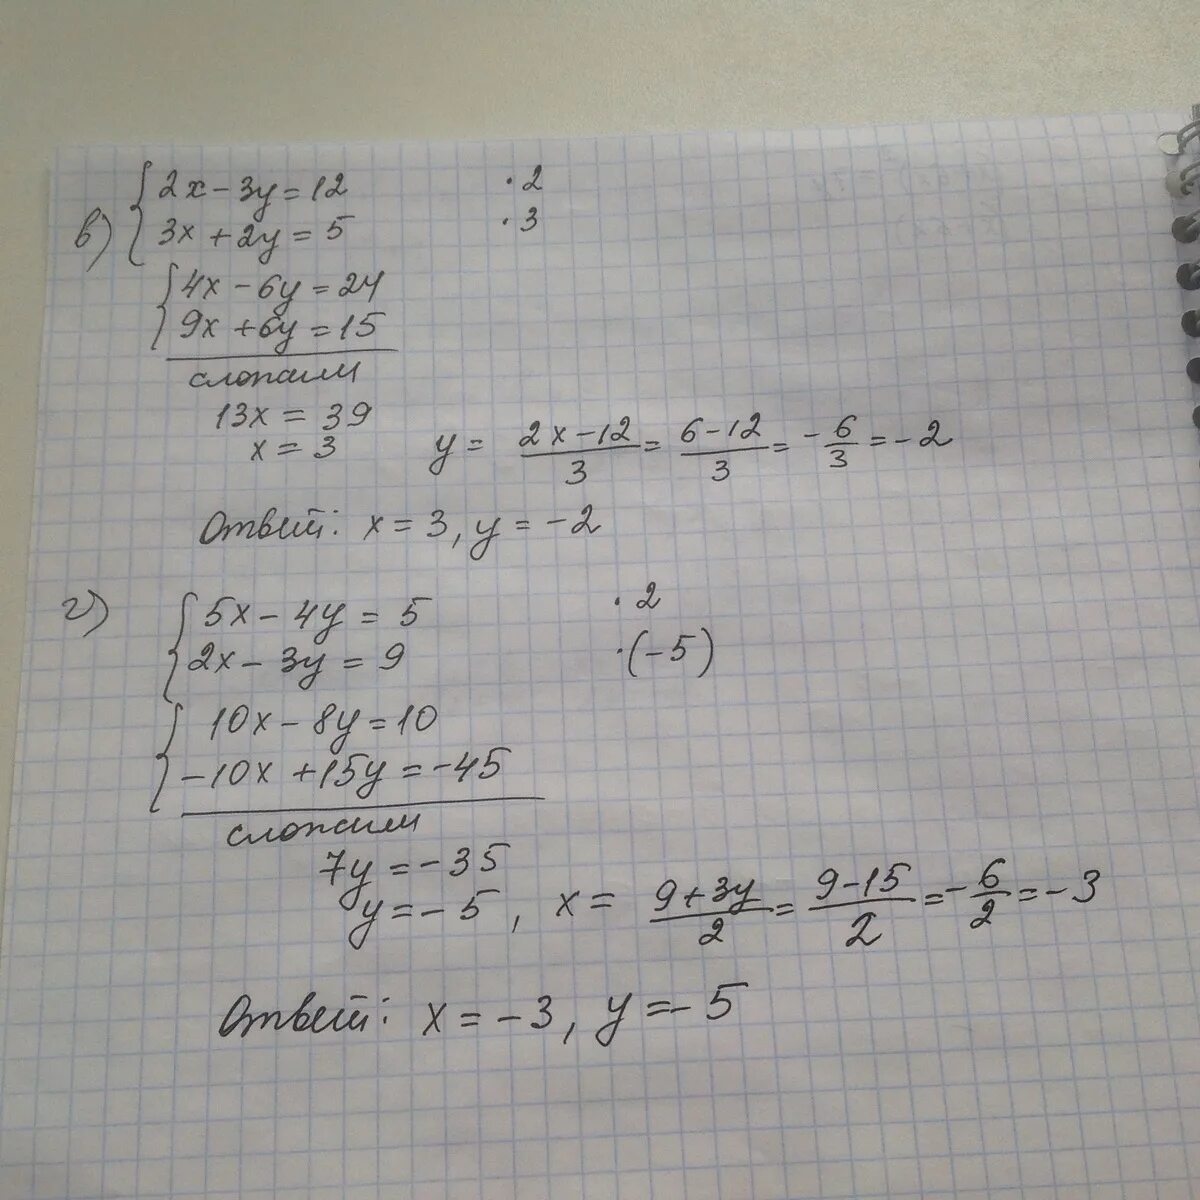 в) { 2x - 3y = 12 · 2
3x + 2y = 5 · 3
{ 4x - 6y = 24
9x + 6y = 15
сложим
13x = 39
x = 3 y = (2x - 12)/3 = (6 - 12)/3 = -6/3 = -2
Ответ: x = 3, y = -2
г) { 5x - 4y = 5 · 2
2x - 3y = 9 · (-5)
{ 10x - 8y = 10
-10x + 15y = -45
сложим
7y = -35
y = -5, x = (9 + 3y)/2 = (9 - 15)/2 = -6/2 = -3
Ответ: x = -3, y = -5